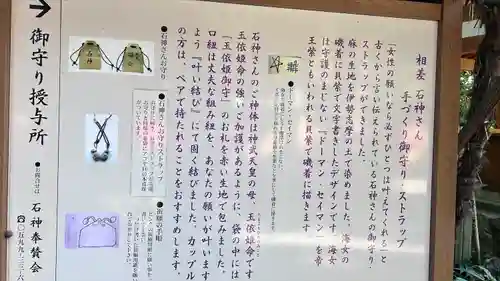 相差 石神さん
手づくり御守り・ストラップ
「女性の願いなら必ずひとつは叶えてくれる」と
古くから言い伝えられている石神さんの御守り・
ストラップができました。
麻の生地を伊勢志摩の山で染めました。海女の
磯着に貝紫で文字書きしたデザインです。海女
は守護のまじない「ドーマン・セイマン」を帝
王紫ともいわれる貝紫で磯着に描きます
●ドーマン・セイマン
石神さんのご神体は神武天皇の母、玉依姫命です
玉依姫命の強いご加護があるよう、袋の中には
「玉依姫御守」のお札を赤い生地で包みました。
口紐は丈夫な組み紐で、あなたの願いが叶います
よう『叶い結び』にて固く結びました。カップル
の方は、ペアで持たれることをおすすめします。
●石神さんお守り
●石神さんお守りストラップ
●祈願の手形
→御守り授与所
●お問合せは
石神奉賛会